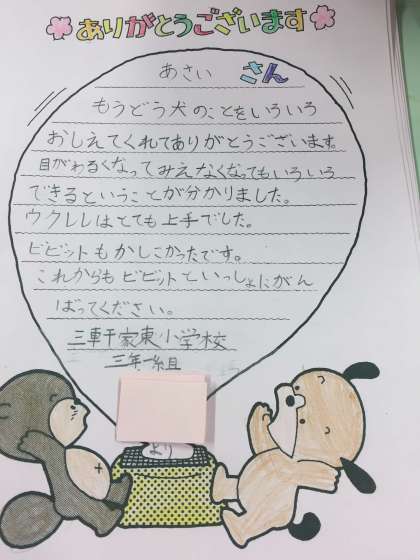 ありがとうございます
あさい さん
もうどう犬のことをいろいろ
おしえてくれてありがとうございます。
目がわるくなってみえなくなってもいろいろ
できるということが分かりました。
ウクレレはとても上手でした。
ビビットもかしこかったです。
これからもビビットといっしょにがん
ばってください。
三軒家東小学校
三年一組
より